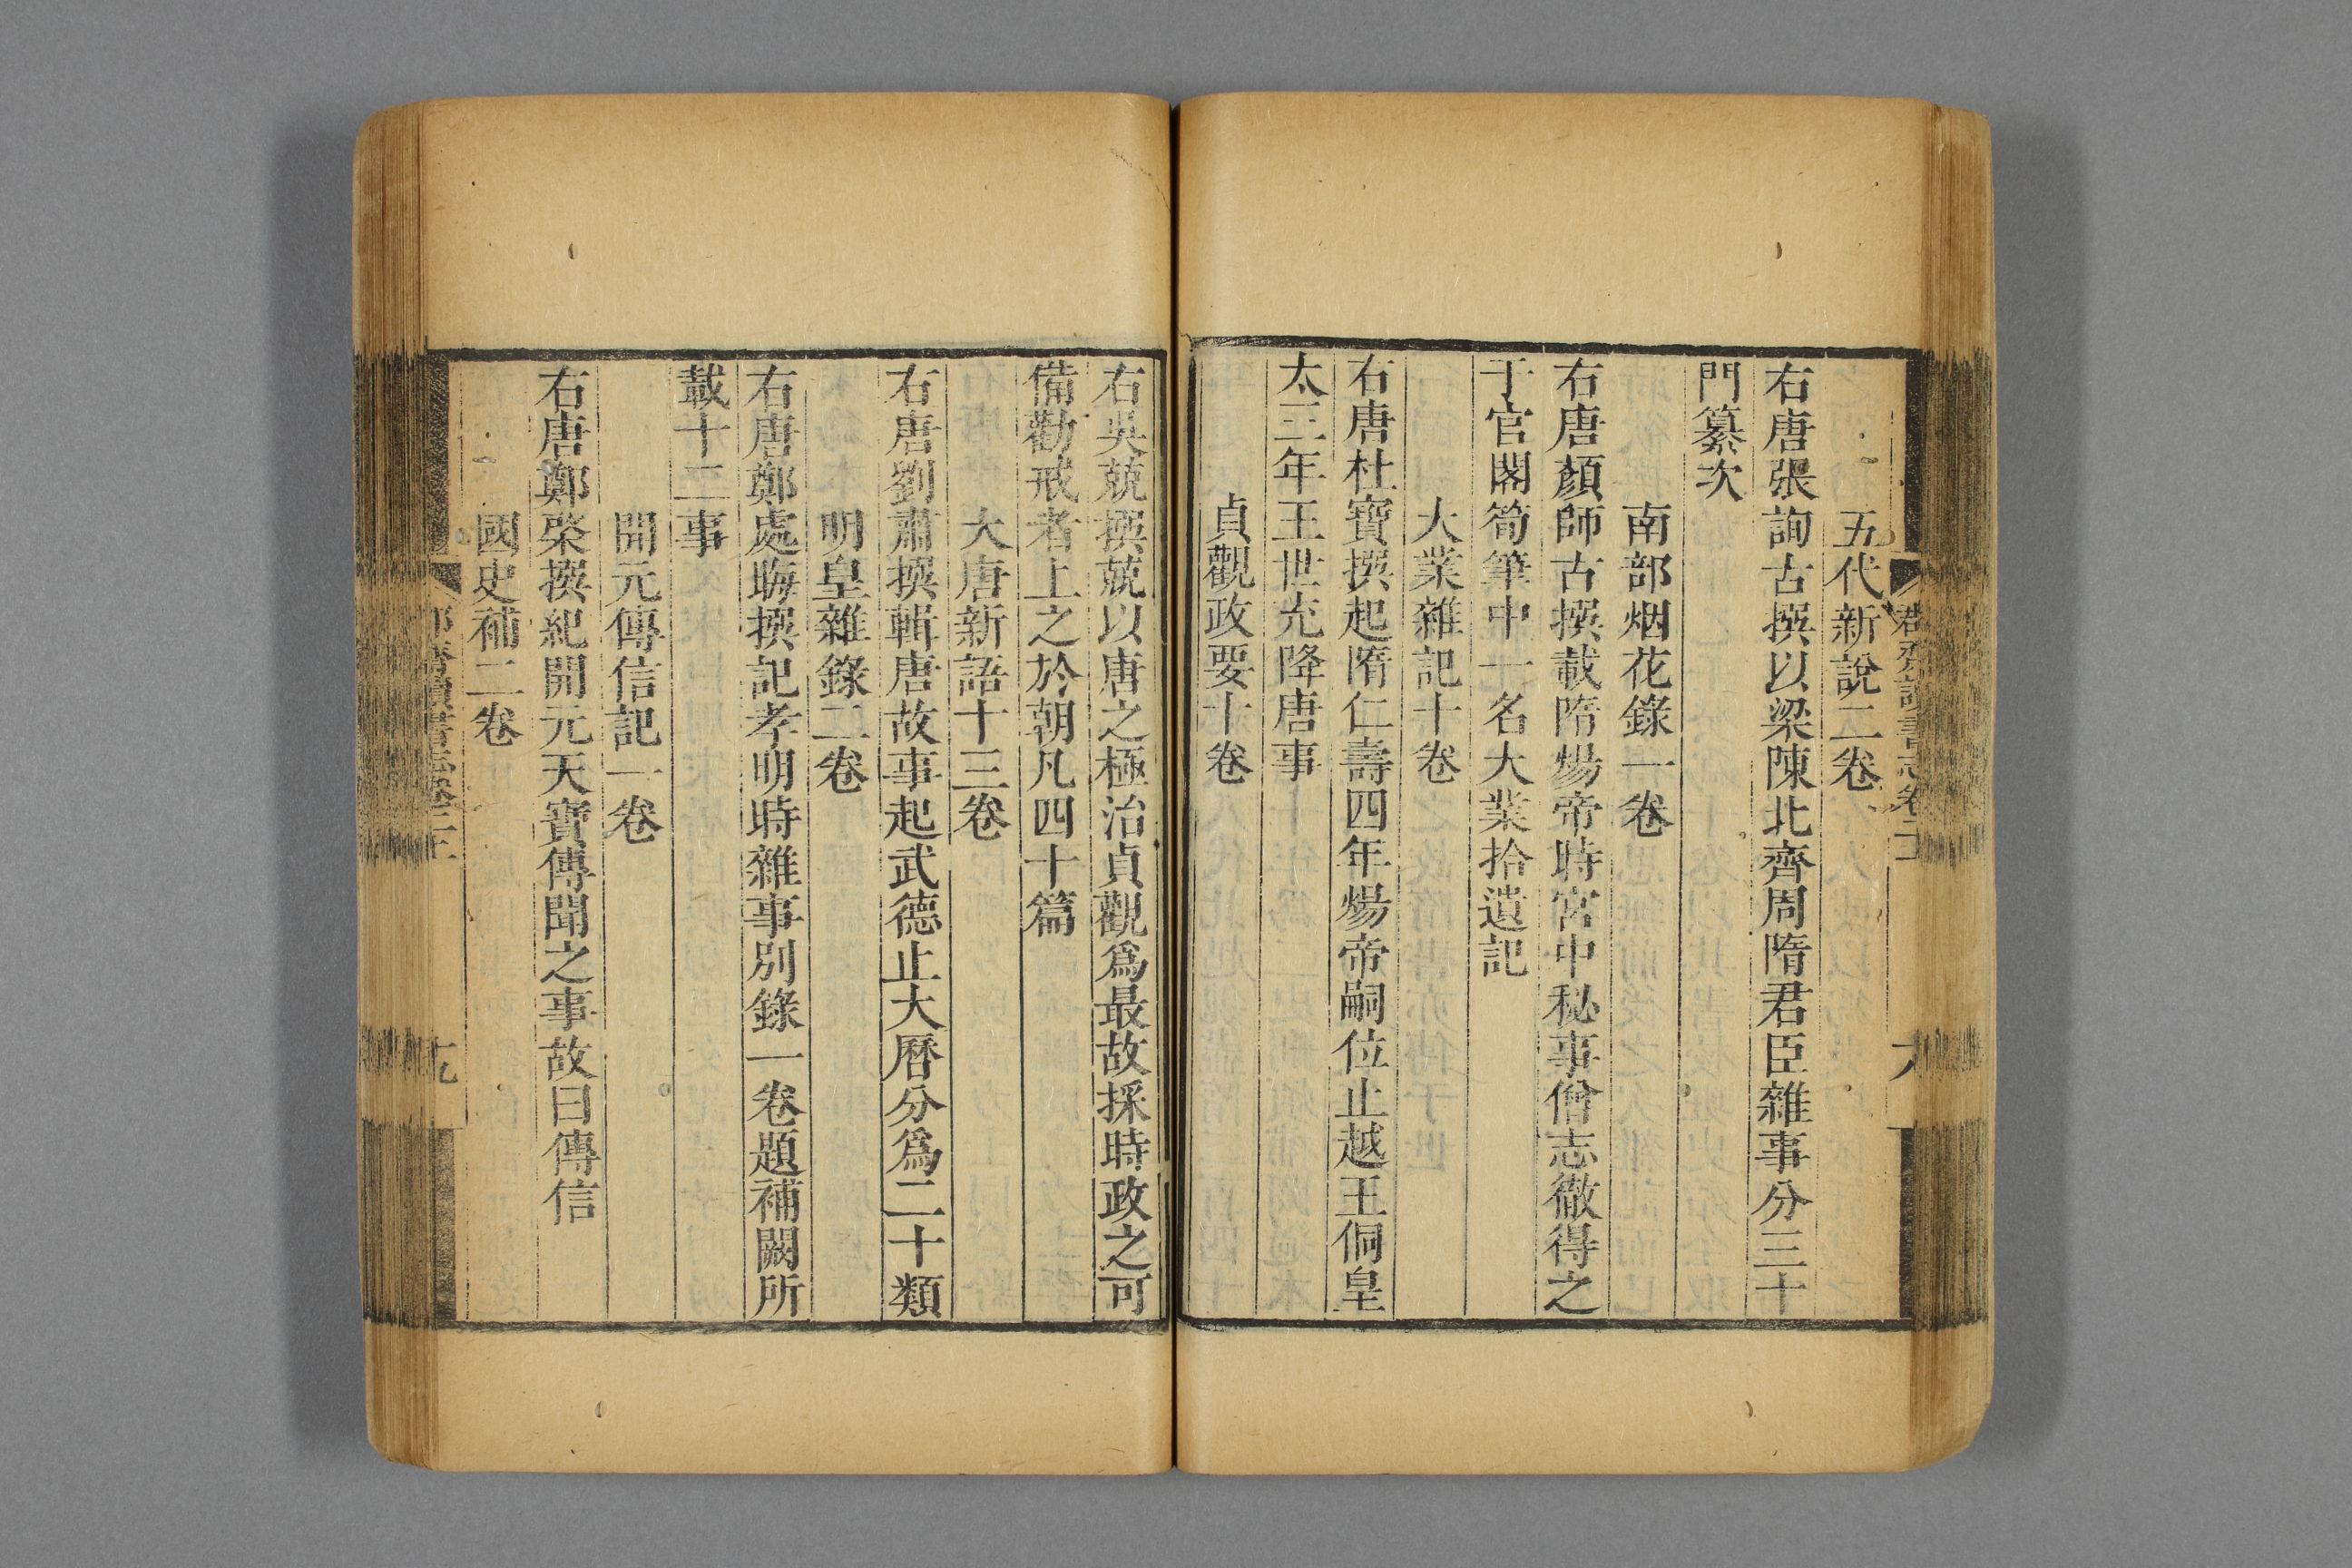 五代新說二卷
右唐張詢古撰以梁陳北齊周隋君臣雜事分三十
門纂次
南部烟花錄一卷
右唐顏師古撰載隋煬帝時宮中秘事僧志徹得之
于官閣筍筆中一名大業拾遺記
大業雜記十卷
右唐杜寶撰起隋仁壽四年煬帝嗣位止越王侗皇
太三年王世充降唐事
貞觀政要十卷
右吳兢撰兢以唐之極治貞觀爲最故採時政之可
備勸戒者上之於朝凡四十篇
大唐新語十三卷
右唐劉肅撰輯唐故事起武德止大曆分爲二十類
明皇雜錄二卷
右唐鄭處晦撰記孝明時雜事別錄一卷題補闕所
載十二事
開元傳信記一卷
右唐鄭棨撰紀開元天寶傳聞之事故曰傳信
國史補二卷